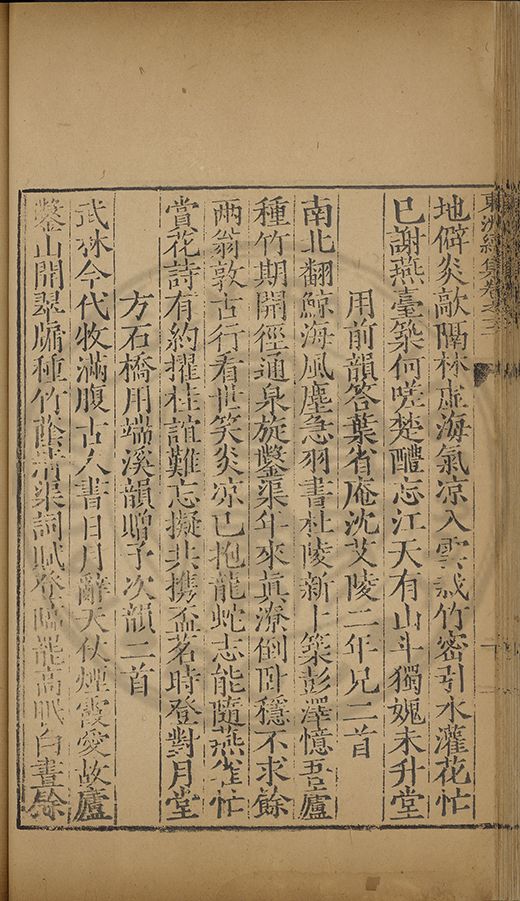 東洲續集卷之二
地僻炎歊隔林虛海氣凉入雲栽竹密引水灌花忙
已謝燕臺築何嗟楚醴忘江天有山斗獨媿未升堂
用前韻答葉省庵沈艾陵二年兄二首
南北翻鯨海風塵急羽書杜陵新卜築彭澤憶吾廬
種竹期開徑通泉旋鑿渠年來眞潦倒卧穩不求餘
兩翁敦古行看世笑炎凉已抱龍蛇志能隨燕雀忙
賞花詩有約擢桂誼難忘擬共携盃茗時登對月堂
方石橋用端溪韻贈予次韻二首
武林今代牧滿腹古人書日月辭天仗煙霞愛故廬
鑿山開翠牖種竹蔭清渠詞賦登臨罷高眠白晝餘